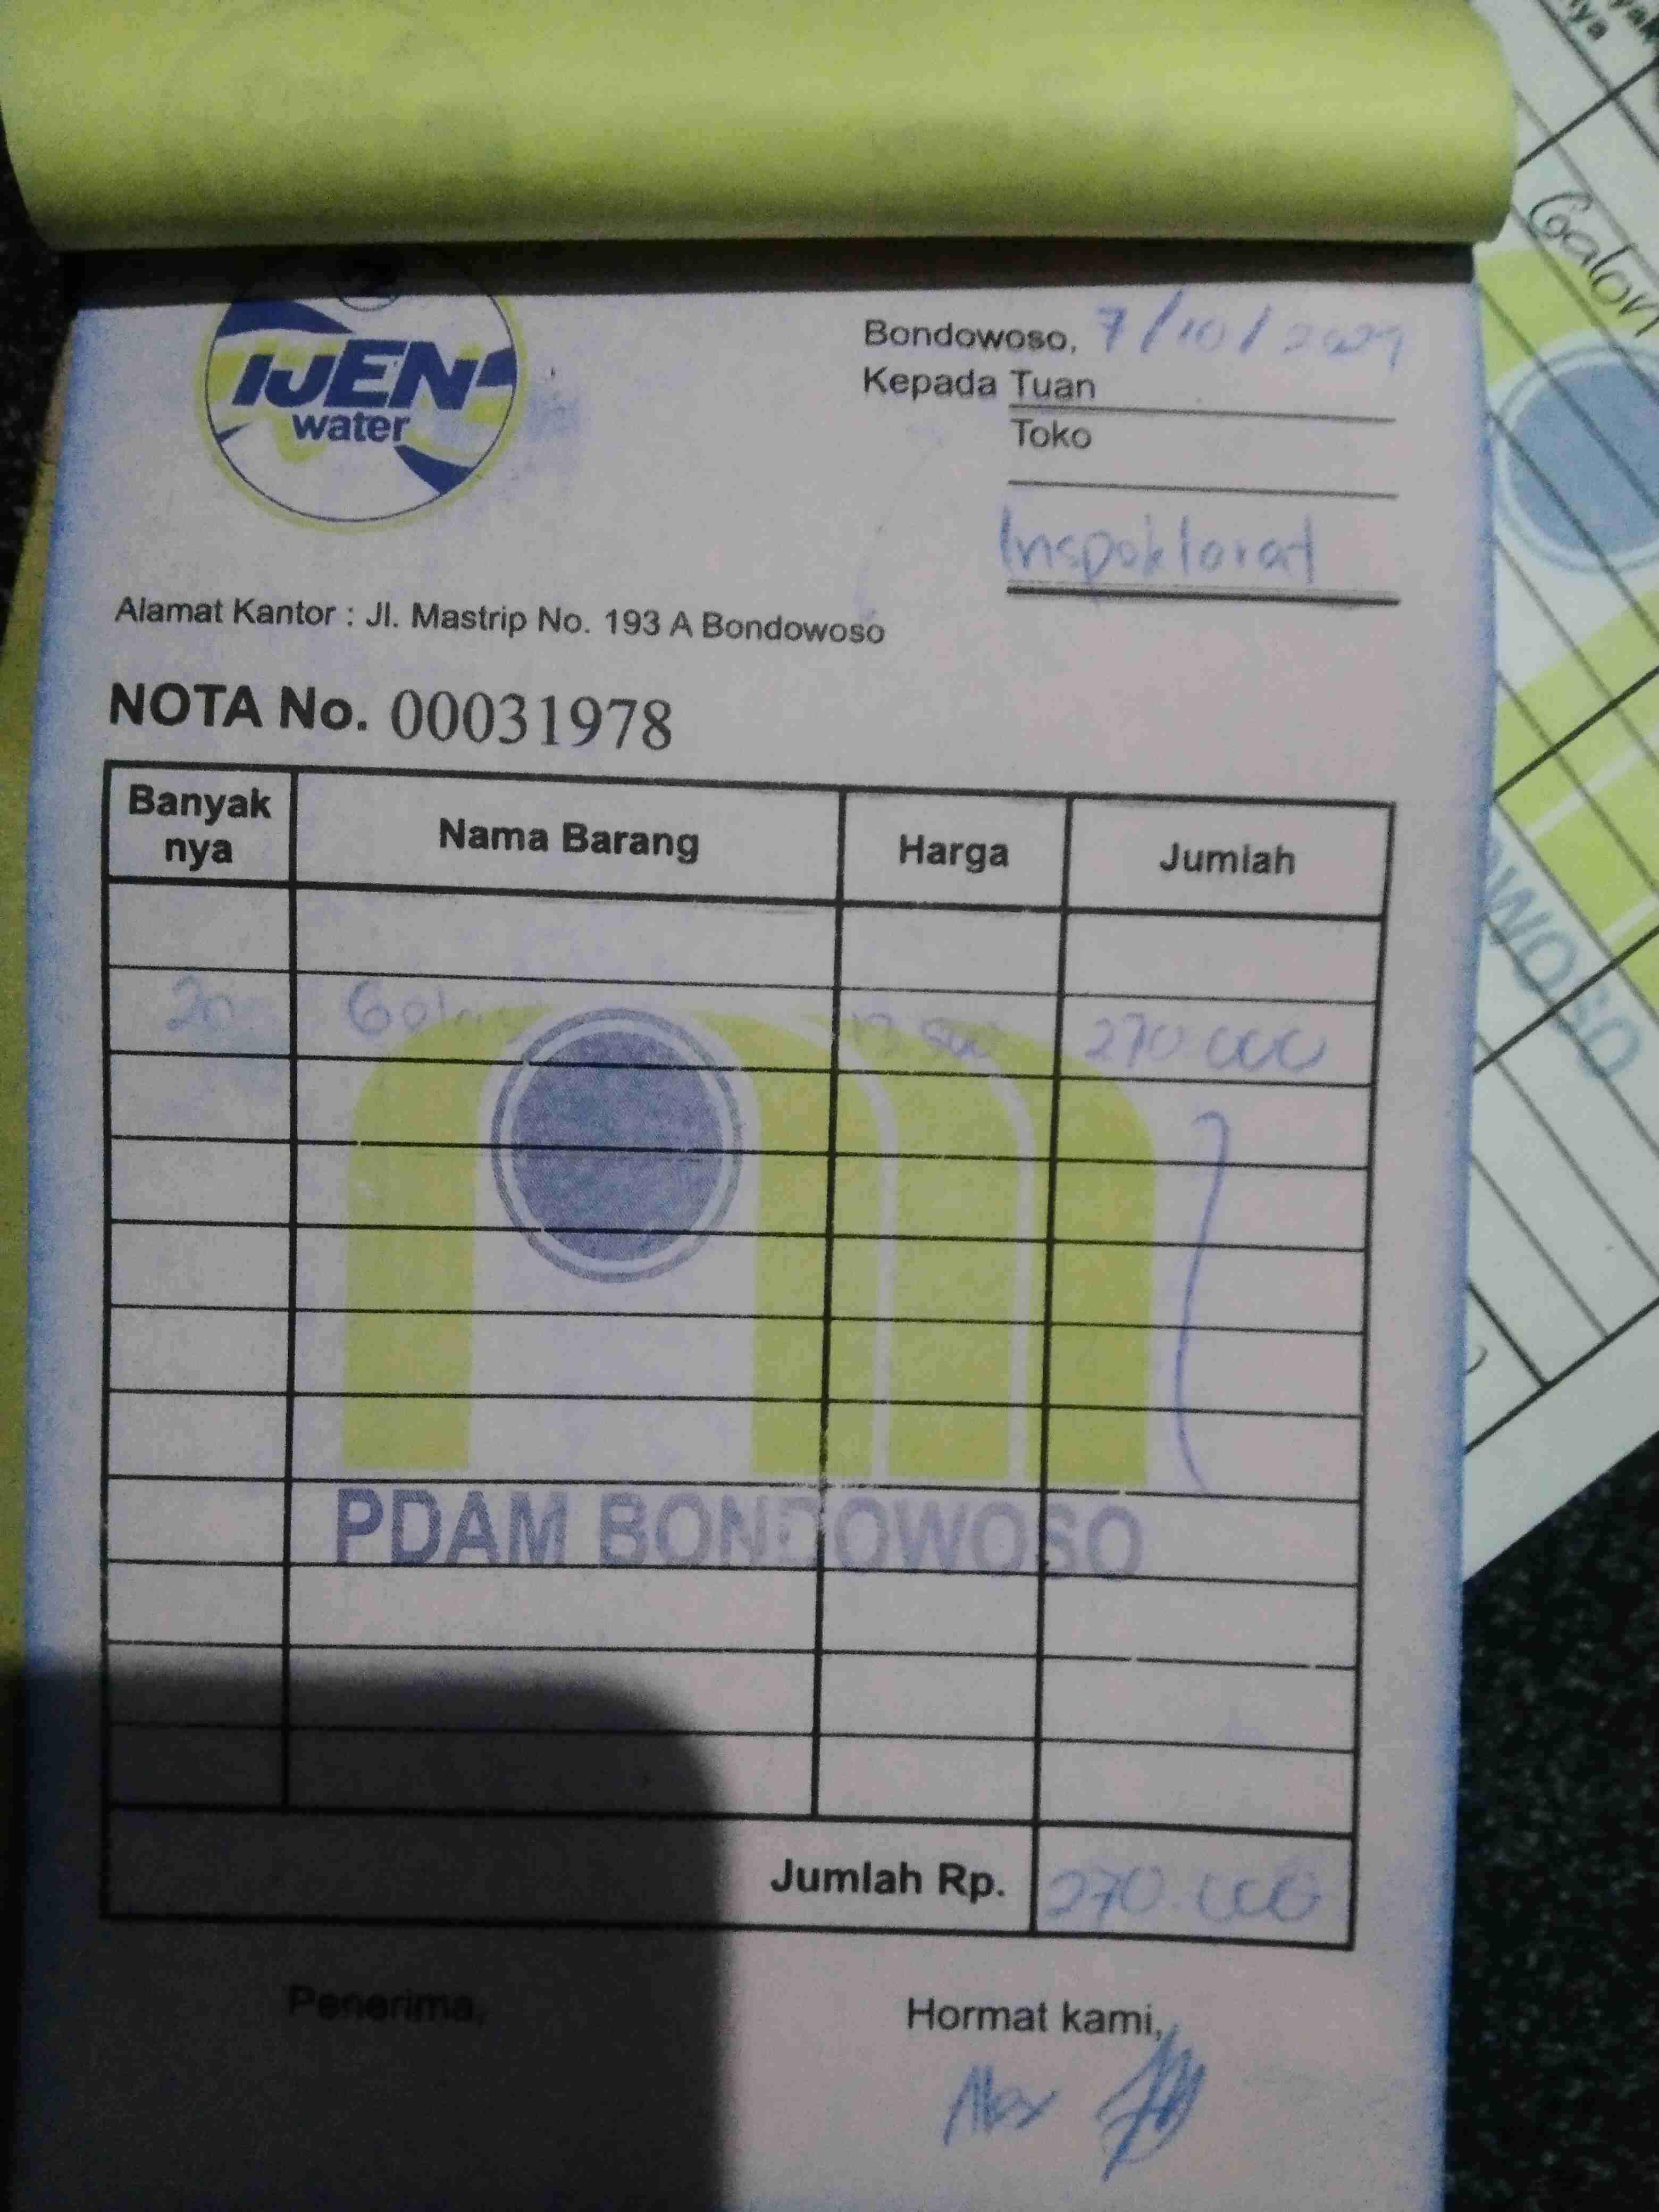 IJEN
water
Bondowoso, 7/10/2024
Kepada Tuan
Toko
Inspektorat
Alamat Kantor : Jl. Mastrip No. 193 A Bondowoso
NOTA No. 00031978
Banyak nya Nama Barang Harga Jumlah
20 Galon 13.500 270.000
PDAM BONDOWOSO
Jumlah Rp. 270.000
Penerima, Hormat kami,
Alex
Galon
OWOSO
nya